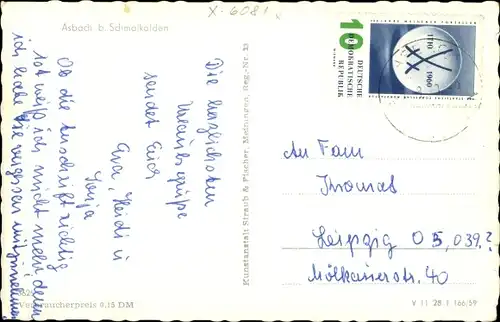 X-6081
Asbach b. Schmalkalden
Die herzlichsten
Urlaubsgrüße
sendet Euch
Eva, Heidi u
Sonja
Ob die Anschrift richtig
ist weiß ich nicht mehr, denn
ich habe sie vergessen mitzunehmen
Verbraucherpreis 0,15 DM
Kunstanstalt Straub & Fischer, Meiningen, Reg.-Nr. 33
10
DEUTSCHE
DEMOKRATISCHE
REPUBLIK
1710 1960
An Fam
Thomas
Leipzig O 5, 039?
Mölkauerstr. 40
V 11 28 1 166/59